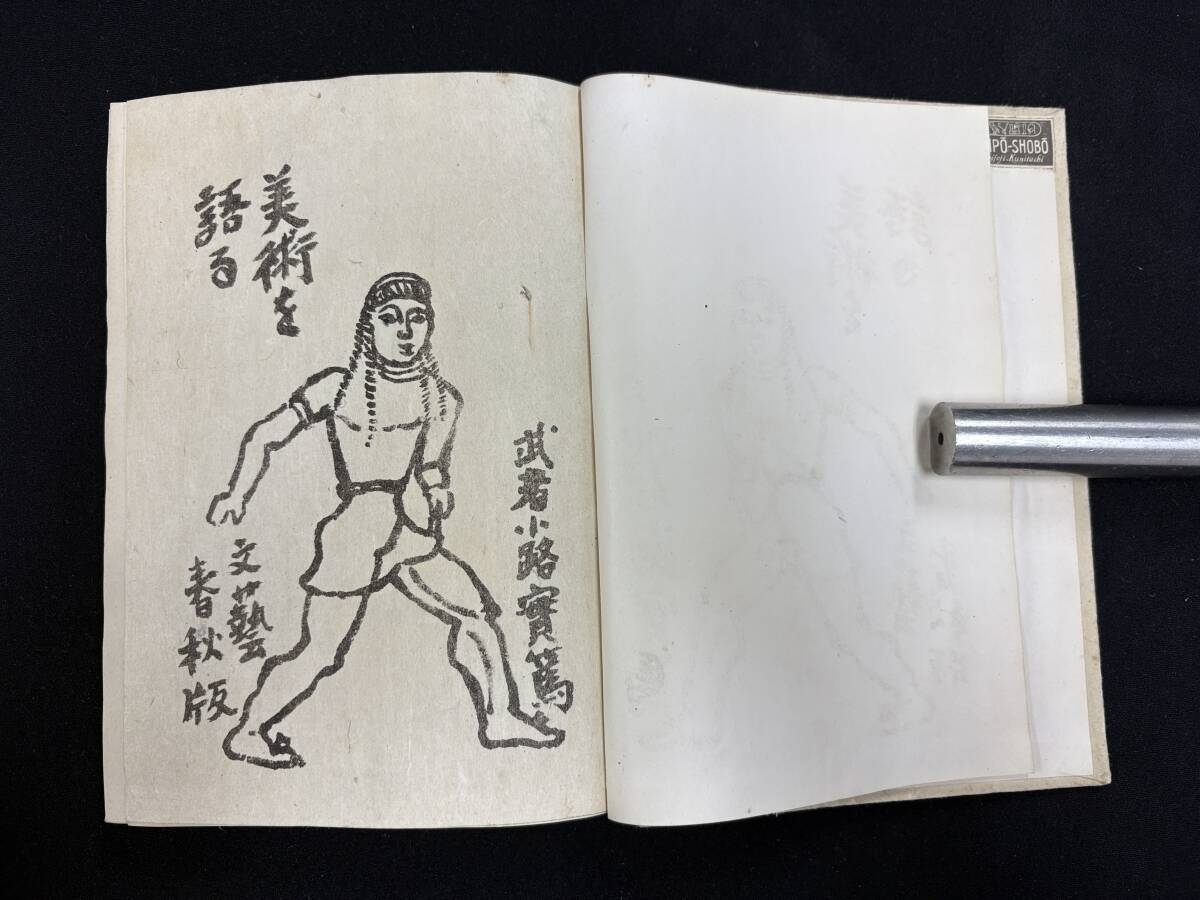 美術を
語る
武者小路實篤
文藝
春秋版
PŌ-SHOBŌ
Kunitachi